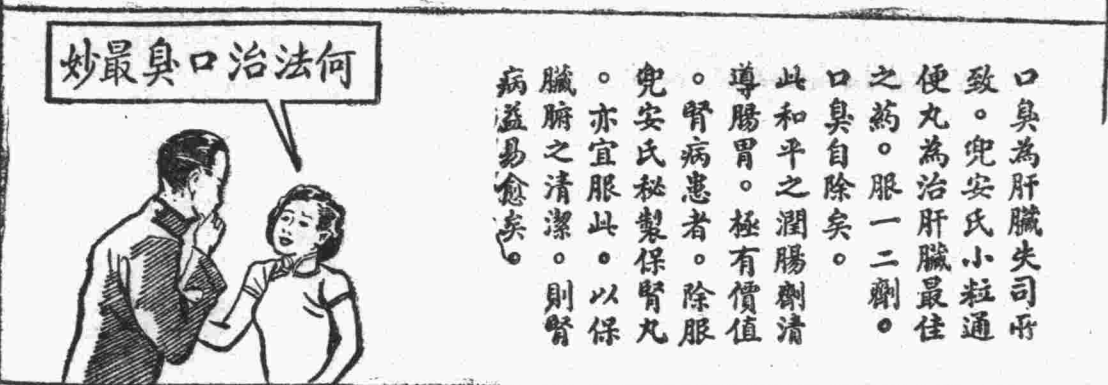 何法治口臭最妙
口臭為肝臟失司所
致。兜安氏小粒通
便丸為治肝臟最佳
之药。服一二劑。
口臭自除矣。
此和平之潤腸劑清
導腸胃。極有價值
。腎病患者。除服
兜安氏秘製保腎丸
。亦宜服此。以保
臟腑之清潔。則腎
病益易愈矣。